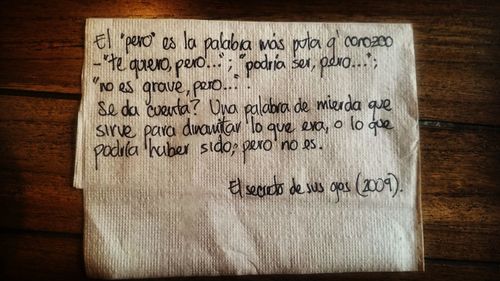 El "pero" es la palabra más puta q' conozco
-"te quiero, pero..."; "podría ser, pero...";
"no es grave, pero...".
Se da cuenta? Una palabra de mierda que
sirve para dinamitar lo que era, o lo que
podría haber sido; pero no es.
El secreto de sus ojos (2009).